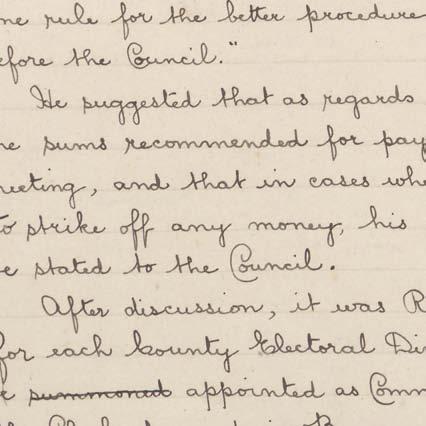 ne rule for the better procedure
efore the Council."
He suggested that as regards
he sums recommended for pay
meeting, and that in cases whe
to strike off any money, his
be stated to the Council.
After discussion, it was R
for each County Electoral Di
summoned appointed as Comm